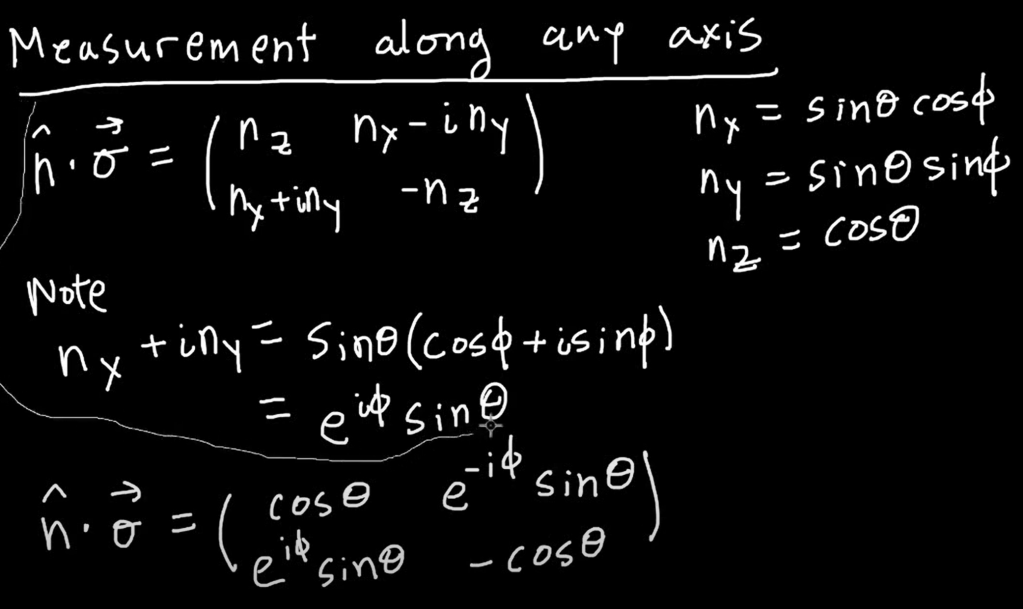 Measurement along any axis
n̂ · σ⃗ = ( n_z   n_x - i n_y )
( n_x + i n_y   -n_z )
n_x = sinθ cosϕ
n_y = sinθ sinϕ
n_z = cosθ
Note
n_x + i n_y = sinθ(cosϕ + i sinϕ)
= e^{iϕ} sinθ
n̂ · σ⃗ = ( cosθ   e^{-iϕ} sinθ )
( e^{iϕ} sinθ   -cosθ )